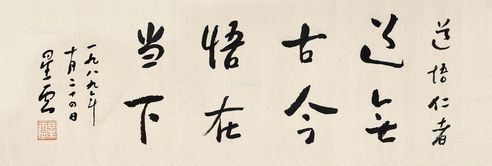 道悟仁者
道無
古今
悟在
当下
一九八九年
十月二十四日
星雲